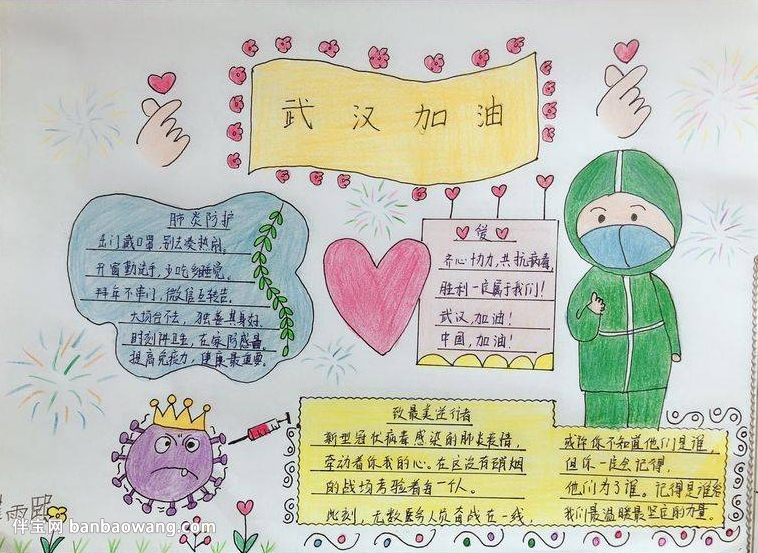 武汉加油
肺炎防护
出门戴口罩,别去凑热闹。
开窗勤洗手,少吃多睡觉。
拜年不串门,微信互转告。
独善其身好。
时刻讲卫生,在家防感冒。
提高免疫力,健康最重要。
爱
齐心协力,共抗病毒,
胜利一定属于我们!
武汉,加油!
中国,加油!
致最美逆行者
新型冠状病毒感染的肺炎疫情,
牵动着你我的心。在这没有硝烟
的战场考验着每一个人。
此刻,无数医务人员奋战在一线,
或许你不知道他们是谁,
但你一定会记得,
他们为了谁。记得是谁给
我们最温暖最坚定的力量。
雨
伴宝网 banbaowang.com